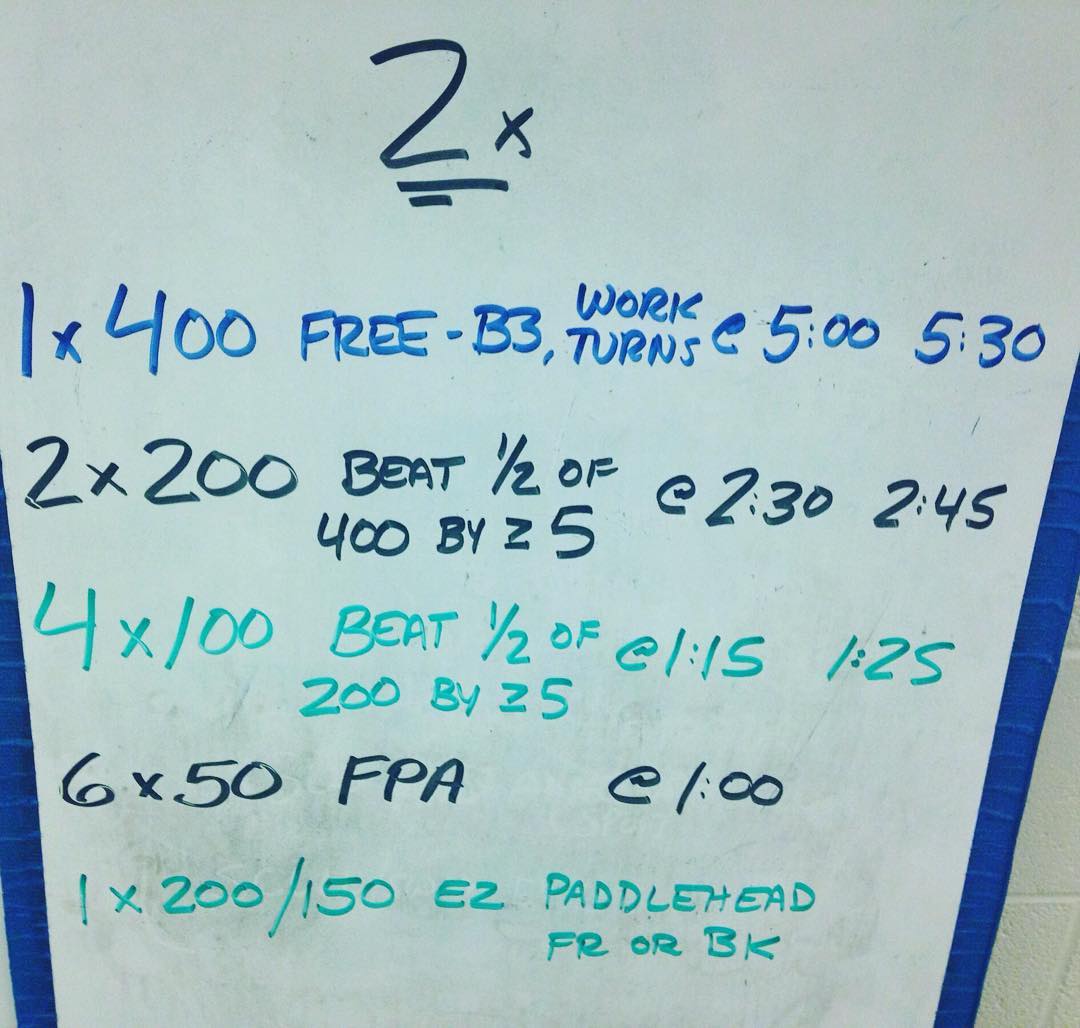 2x
1 x 400 FREE - B3, WORK TURNS @ 5:00 5:30
2 x 200 BEAT 1/2 OF @ 2:30 2:45
400 BY ≥ 5
4 x 100 BEAT 1/2 OF @ 1:15 1:25
200 BY ≥ 5
6 x 50 FPA @ 1:00
1 x 200/150 EZ PADDLEHEAD
FR OR BK